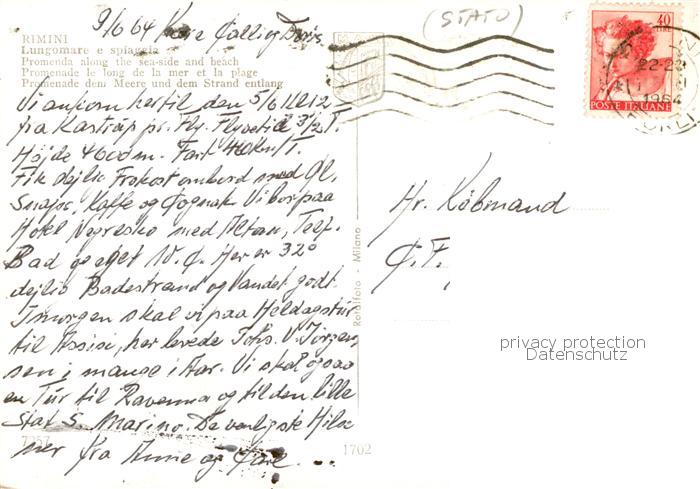 9/6 64 Kære
(STATO)
RIMINI
Lungomare e spiaggia
Promenda along the sea-side and beach
Promenade le long de la mer et la plage
Promenade dem Meere und dem Strand entlang
Vi ankom hertil den 5/6 Kl 12
fra Kastrup pr. Fly. Flyvetid 3 1/2 T.
Højde 4600 m. Fart 460 Km/T.
Fik dejlig Frokost ombord med Øl,
Snaps, Kaffe og Cognak. Vi bor paa
Hotel Negresko med Altan, Telf.
Bad og eget W.C. Her er 32°
dejlig Badestrand og Vandet godt.
I morgen skal vi paa Heldagstur
til Assisi, her levede Johs. V. Jørgen-
sen i mange Aar. Vi skal ogsaa
en Tur til Ravenna og til den lille
Stat S. Marino. De venligste Hils-
ner fra Anne og
7257
1702
Rotalfoto - Milano
40
LIRE
POSTE ITALIANE
22-22
1964
Hr. Købmand
C. F.
privacy protection
Datenschutz